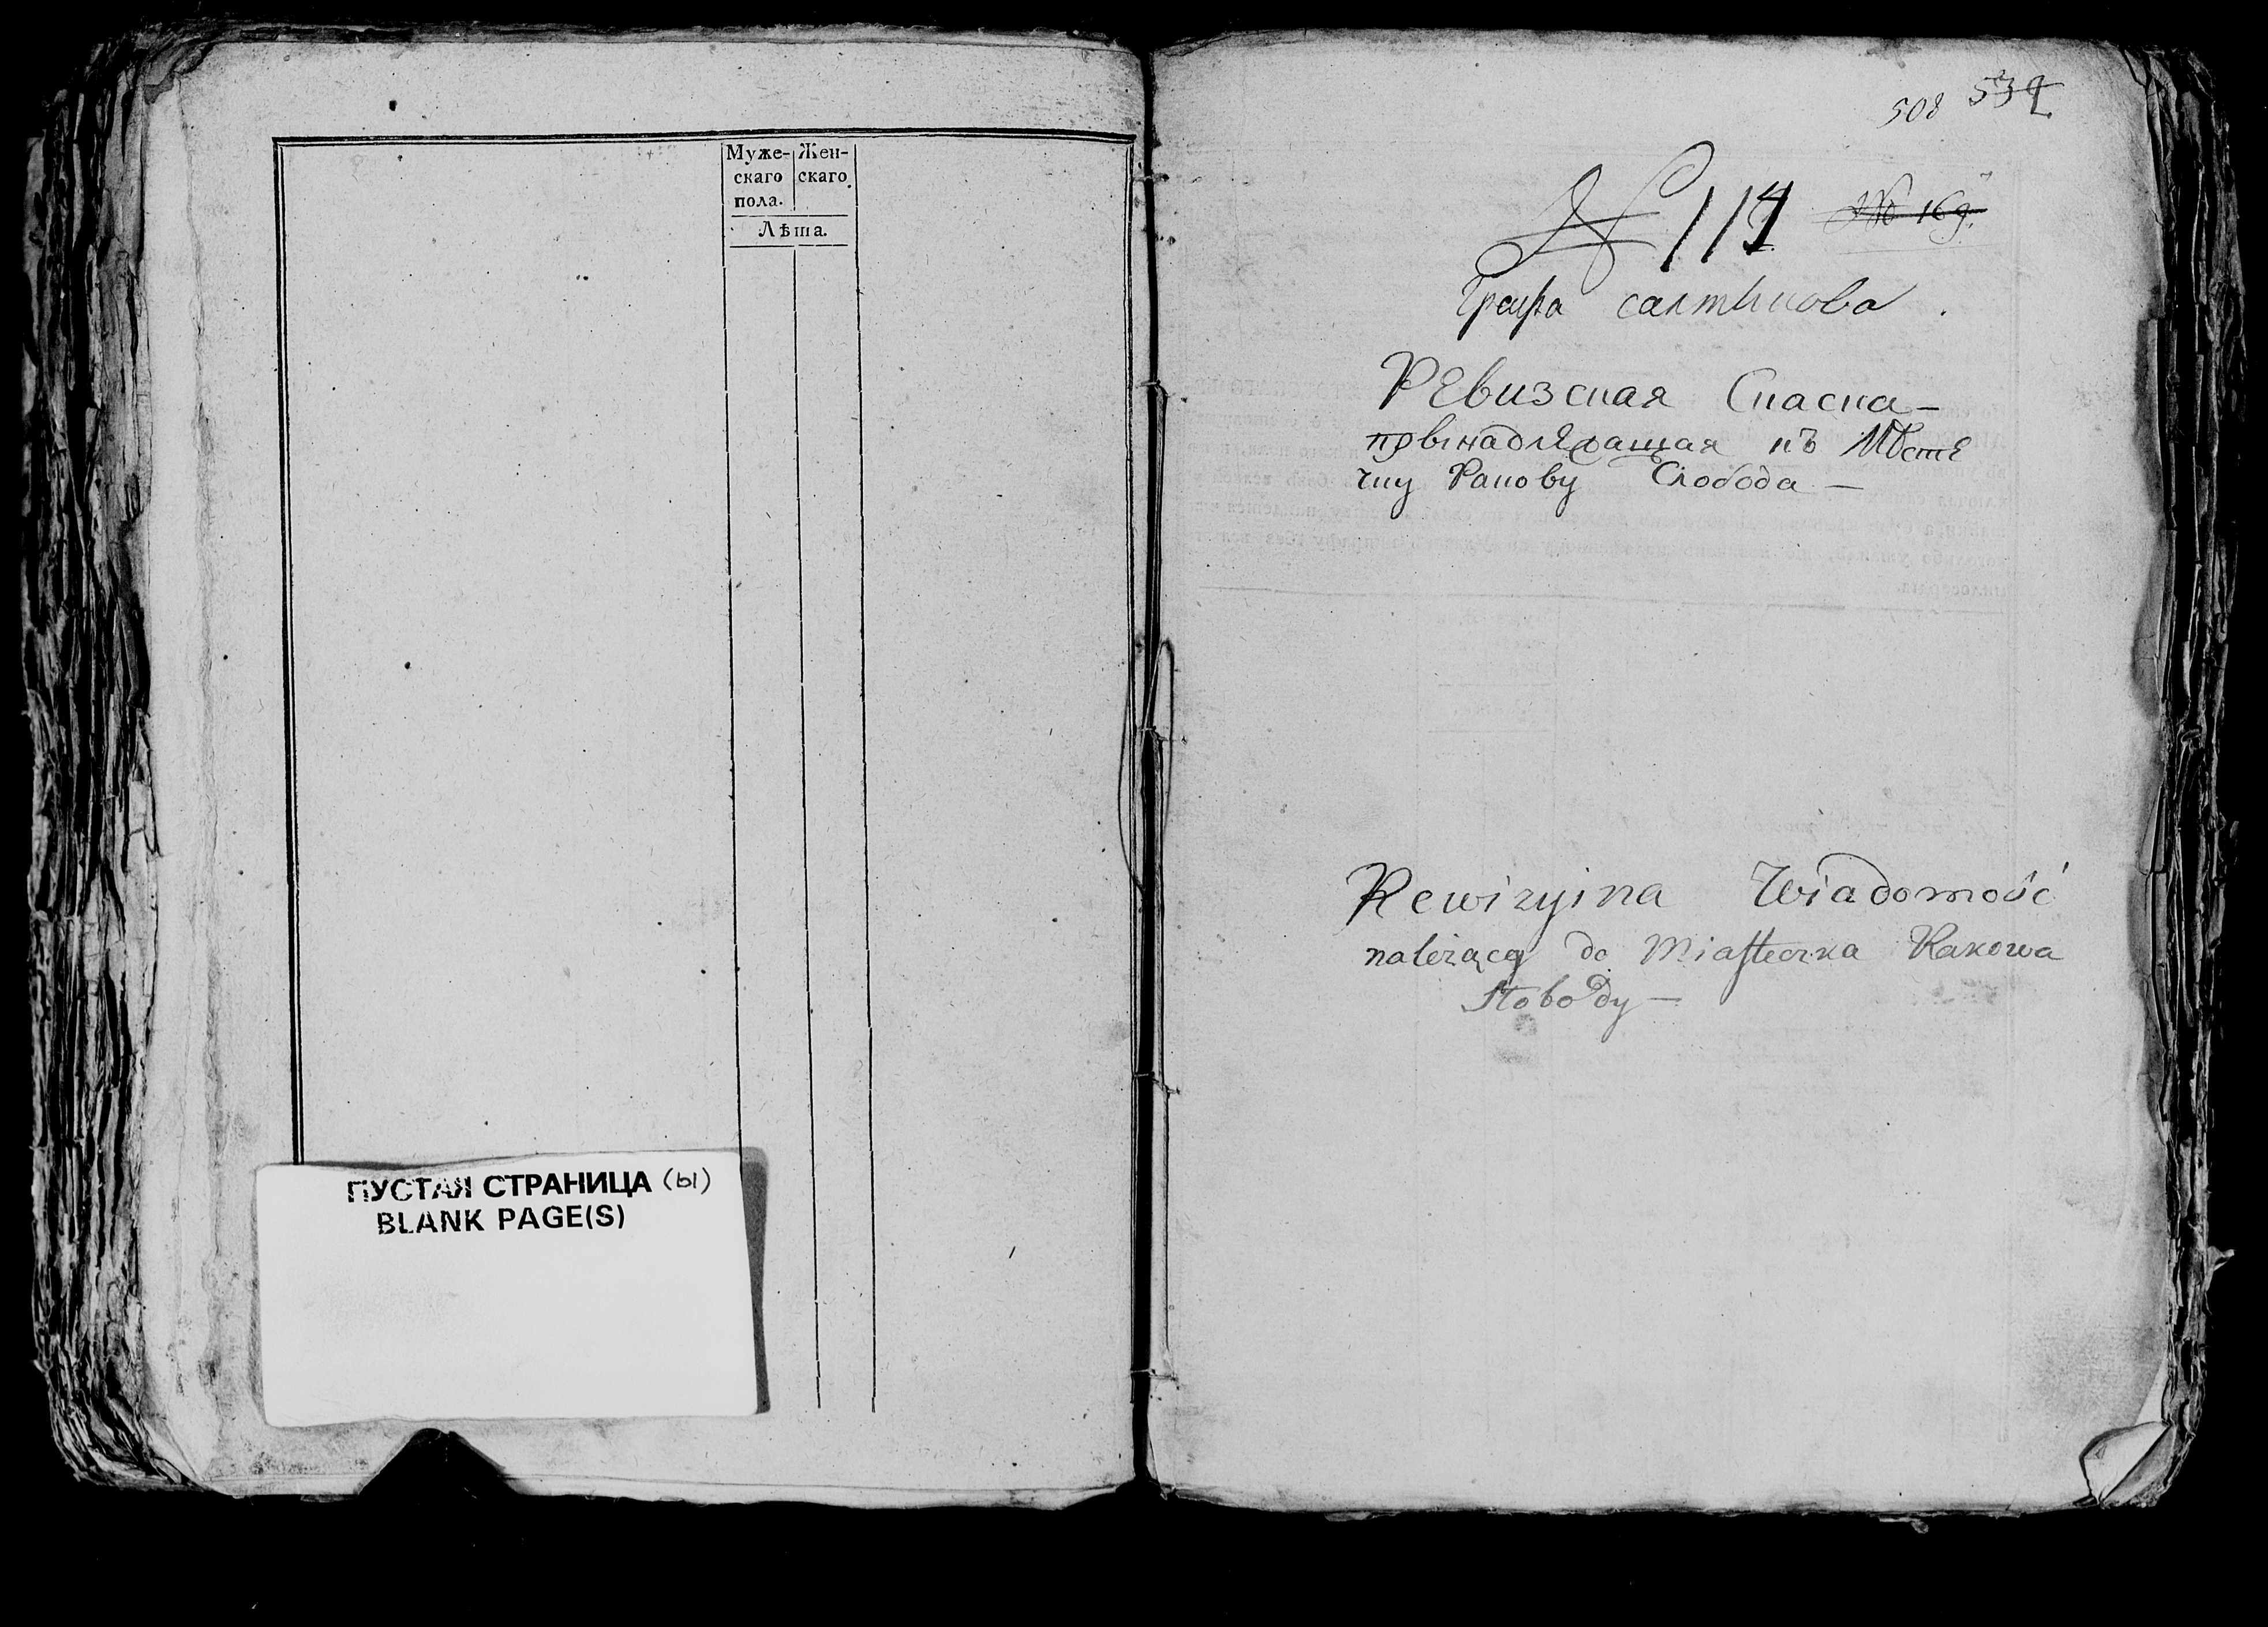 Муже- Жен-
скаго скаго
пола.
Лѣта.
ПУСТАЯ СТРАНИЦА (ы)
BLANK PAGE(S)
508 532
№ 114 № 169.
Графа салтыкова
РЕвизская Скаска —
прынадлЕжащая къ МѣстЕ
чку Ракову Слобода —
Rewizyina Wiadomość
należącą do Miasteczka Rakowa
Słobody —